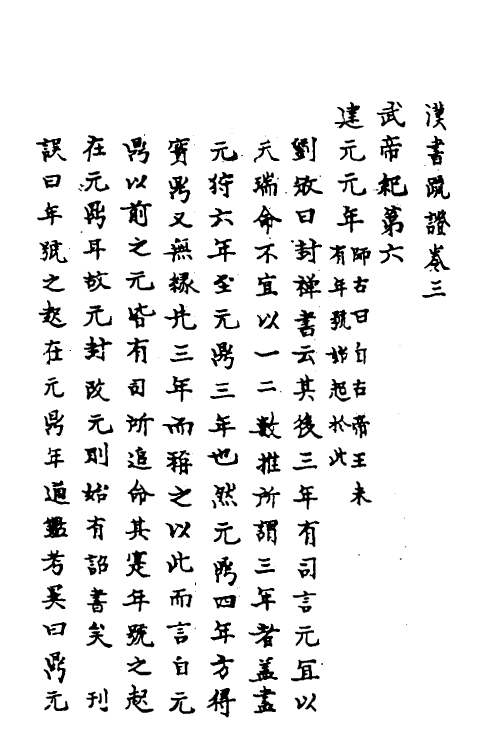 漢書疏證卷三
武帝紀第六
建元元年師古曰自古帝王未
有年號始起於此
劉攽曰封禪書云其後三年有司言元宜以
天瑞命不宜以一二數推所謂三年者蓋盡
元狩六年至元鼎三年也然元鼎四年方得
寶鼎又無緣先三年而稱之以此而言自元
鼎以前之元皆有司所追命其實年號之起
在元鼎耳故元封改元則始有詔書矣 刊
誤曰年號之起在元鼎年通鑑考異曰鼎元